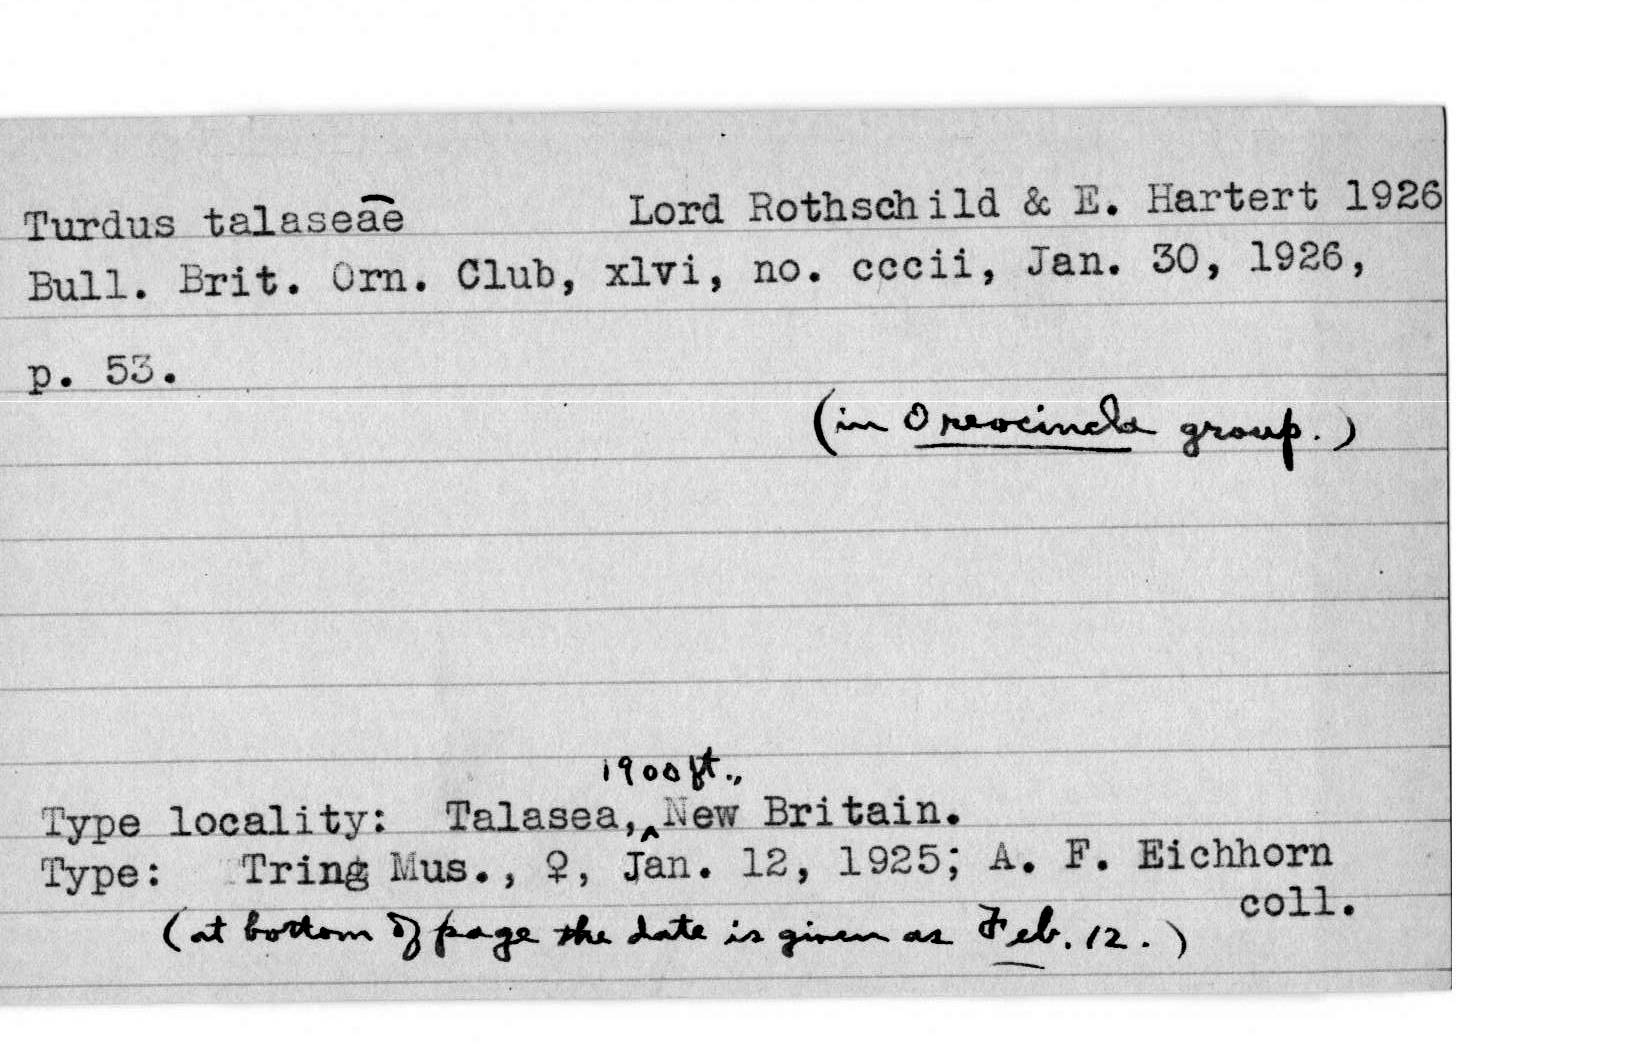 Turdus talaseae Lord Rothschild & E. Hartert 1926
Bull. Brit. Orn. Club, xlvi, no. cccii, Jan. 30, 1926,
p. 53.
(in Oreocincla group.)
1900 ft.,
Type locality: Talasea, ‸New Britain.
Type: Tring Mus., ♀, Jan. 12, 1925; A. F. Eichhorn
coll.
(at bottom of page the date is given as Feb. 12.)